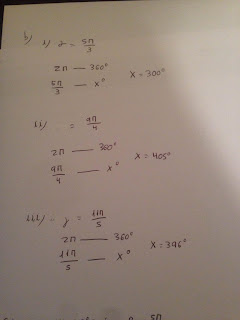 b) i) α = 5π/3
2π — 360°
5π/3 — x° x = 300°
ii) = 9π/4
2π — 360°
9π/4 — x° x = 405°
iii) = 11π/5
2π — 360°
11π/5 — x° x = 396°